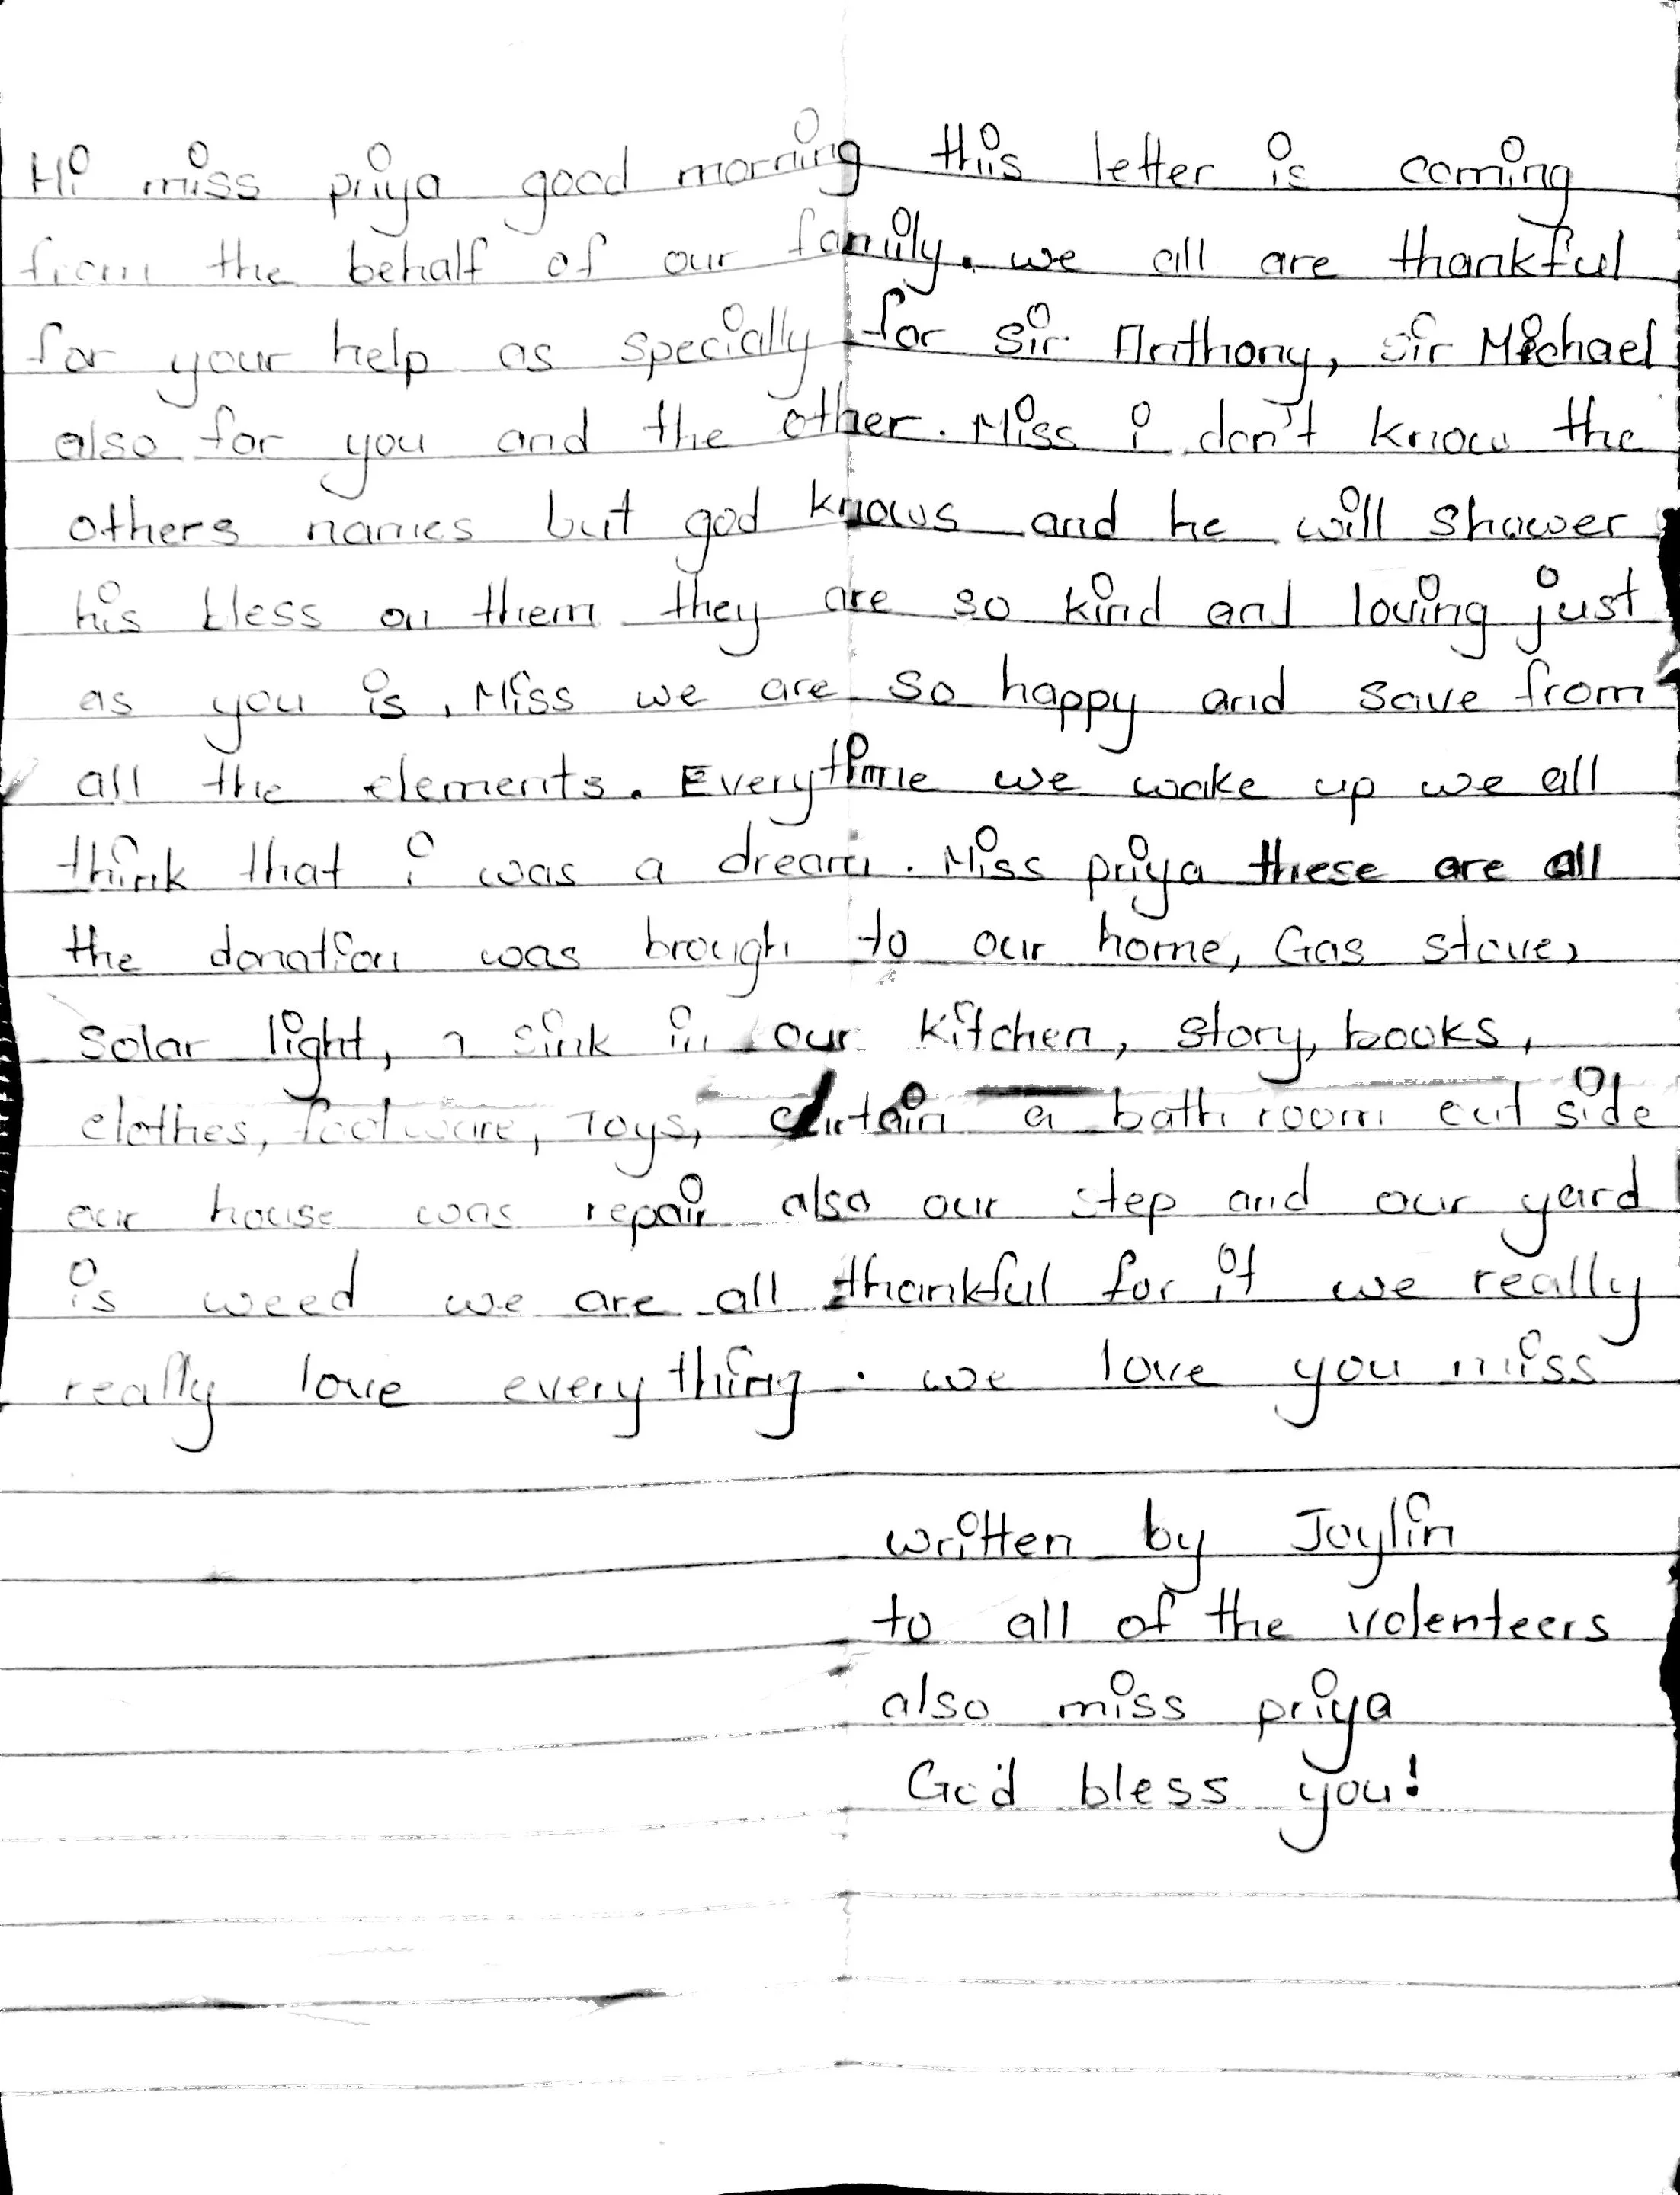 Hi miss priya good morning this letter is coming
from the behalf of our family. we all are thankful
for your help as specially for Sir Anthony, Sir Michael
also for you and the other. Miss i don't know the
others names but god knows and he will shower
his bless on them they are so kind and loving just
as you is, Miss we are so happy and save from
all the elements. Everytime we wake up we all
think that i was a dream. Miss priya these are all
the donation was brough to our home, Gas stove,
Solar light, a sink in our kitchen, story, books,
clothes, footware, Toys, curtain a bath room out side
our house was repair also our step and our yard
is weed we are all thankful for it we really
really love every thing. we love you miss
written by Joylin
to all of the volenteers
also miss priya
God bless you!